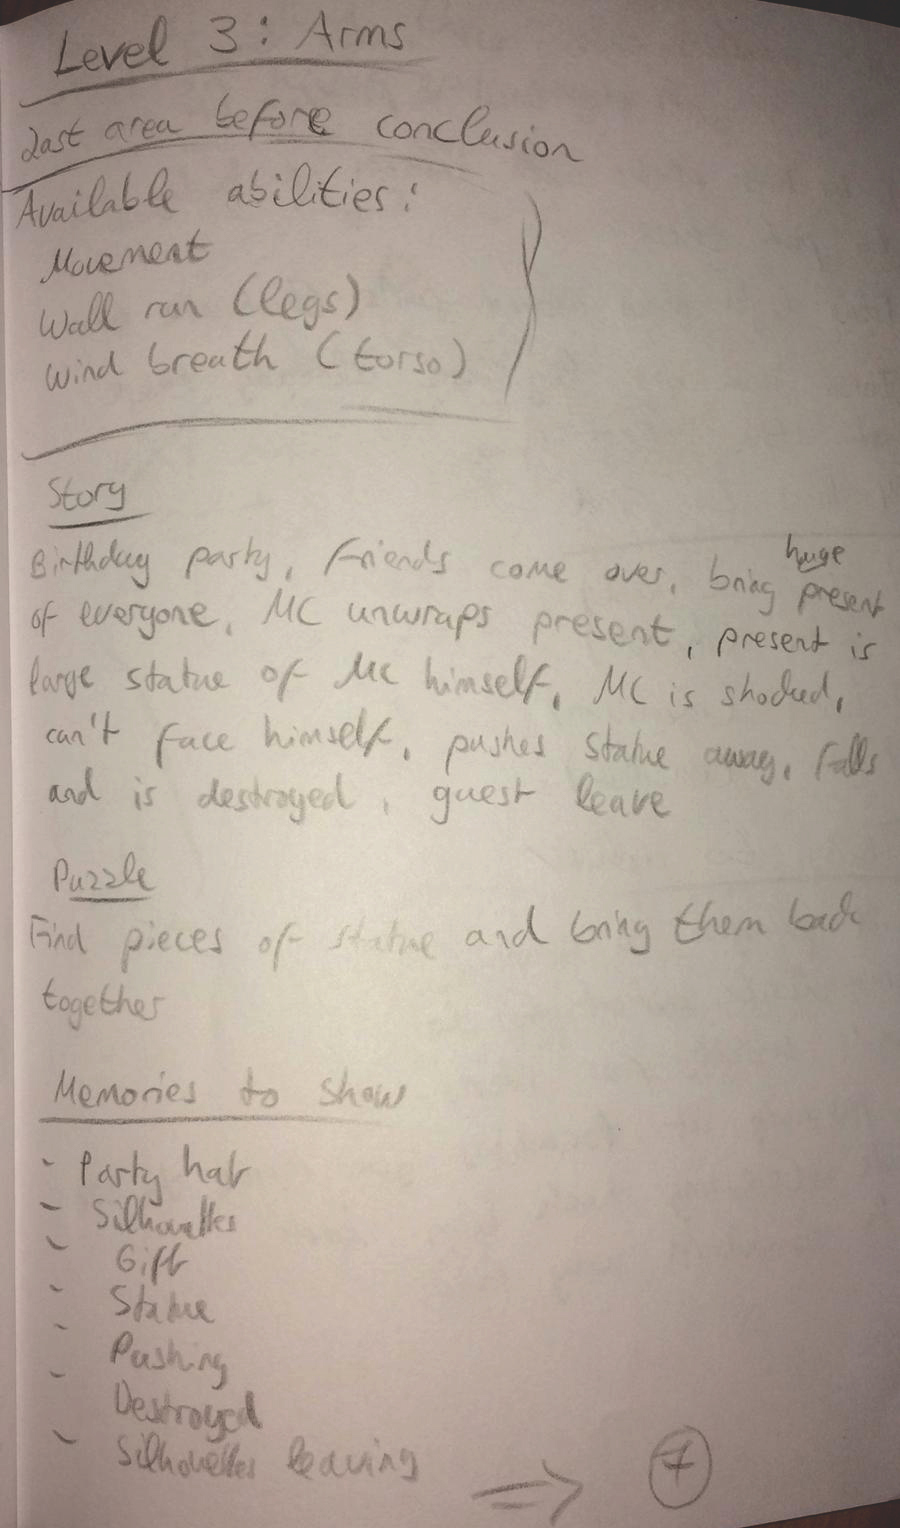 Level 3: Arms
Last area before conclusion
Available abilities:
Movement
Wall run (legs)
Wind breath (torso)
Story
Birthday party, Friends come over, bring huge present
of everyone, MC unwraps present, present is
large statue of MC himself, MC is shocked,
can't face himself, pushes statue away, falls
and is destroyed, guest leave
Puzzle
Find pieces of statue and bring them back
together
Memories to show
- Party hat
- Silhouettes
- Gift
- Statue
- Pushing
- Destroyed
- Silhouettes leaving
⇒ 7